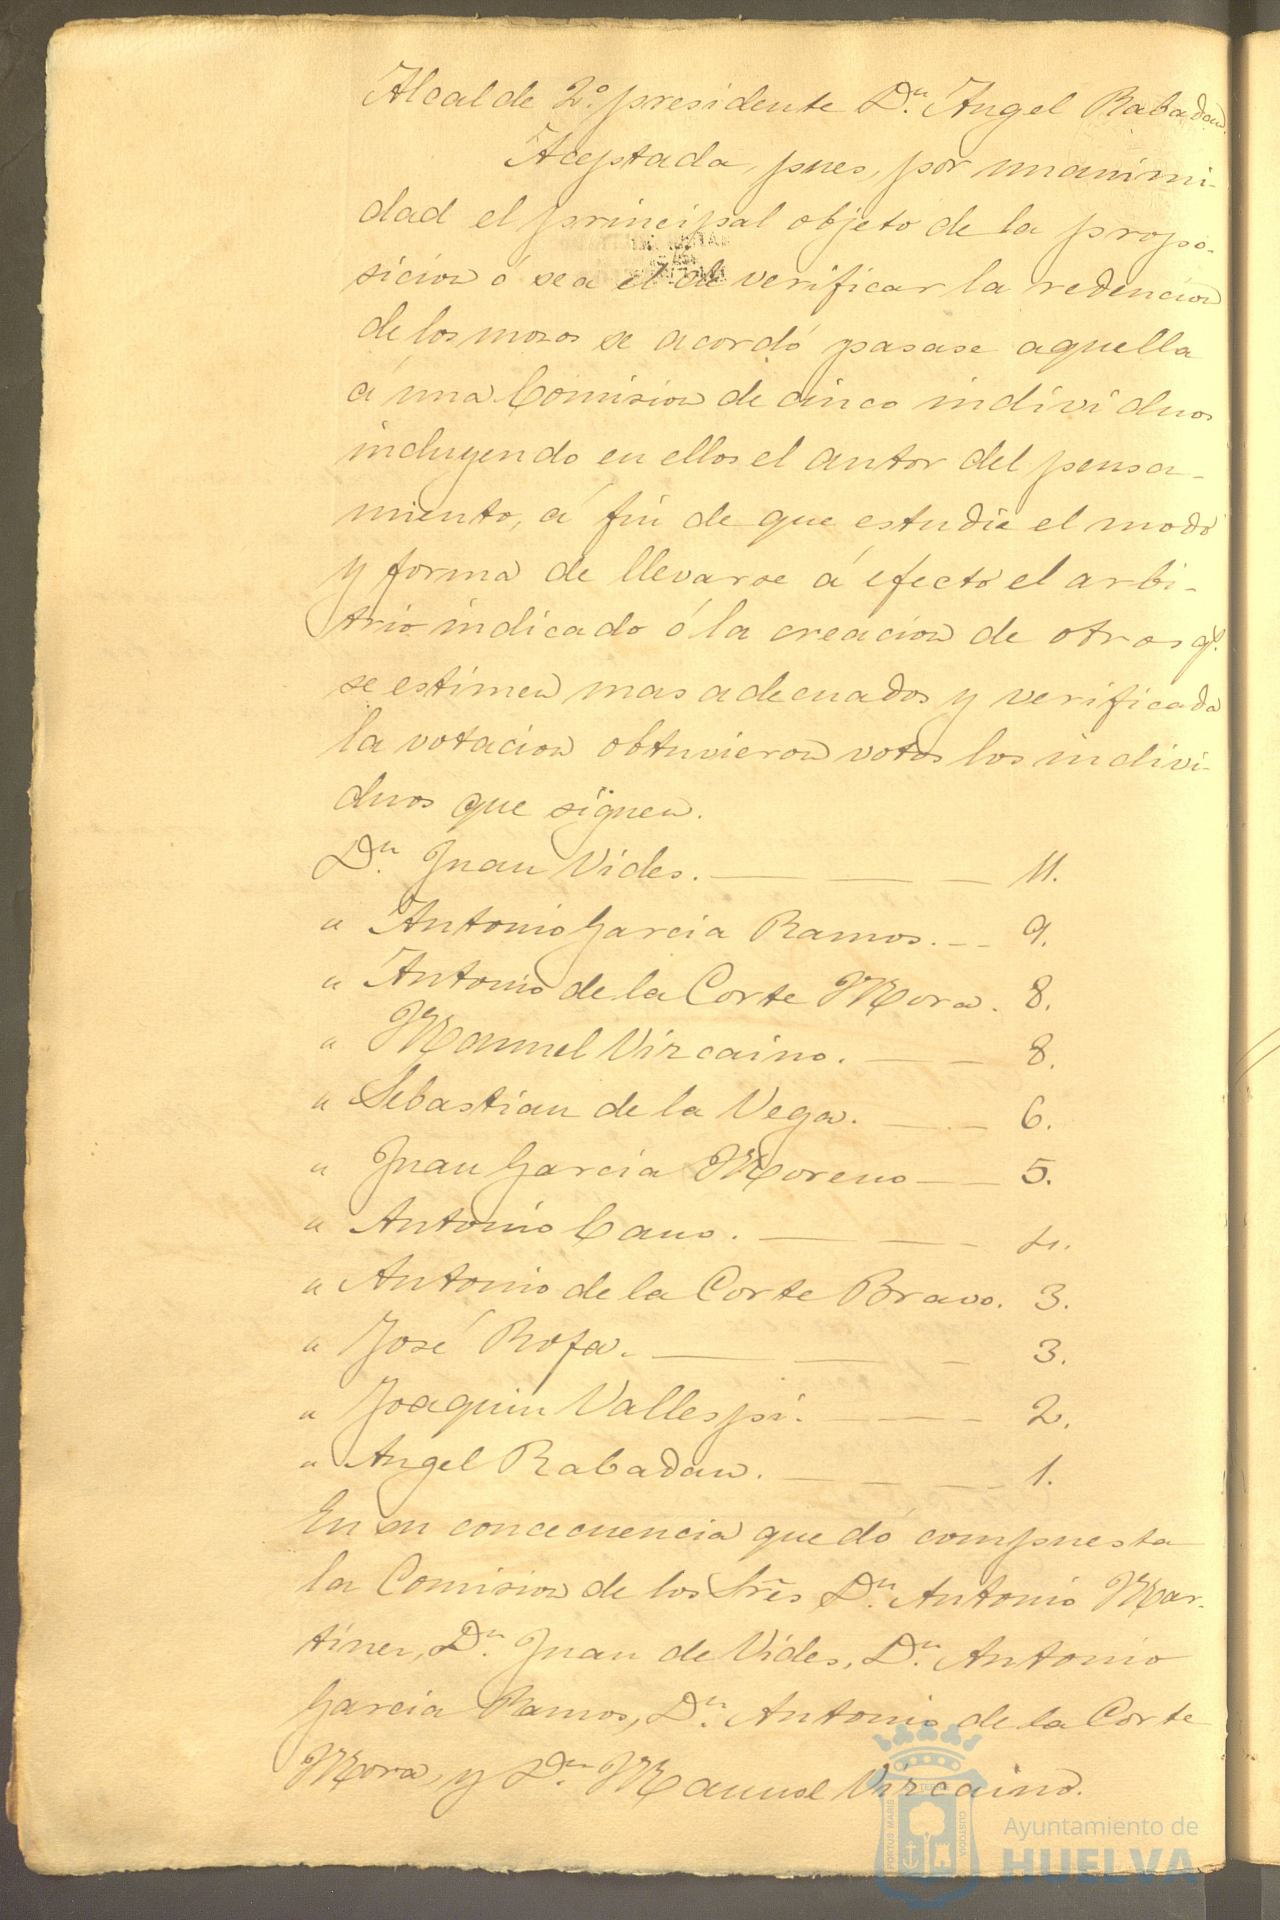 Alcalde 2º presidente Dn. Angel Rabadan.
Aceptada, pues, por unanimi-
dad el principal objeto de la propo-
sicion ó sea el de verificar la redencion
de los mozos se acordó pasase aquella
á una Comision de cinco individuos
incluyendo en ellos el autor del pensa-
miento, á fin de que estudie el modo
y forma de llevarse á efecto el arbi-
trio indicado ó la creacion de otros q.
se estimen mas adecuados y verificada
la votacion obtuvieron votos los indivi-
duos que siguen.
Dn. Juan Vides. — — — 11.
" Antonio Garcia Ramos. — — 9.
" Antonio de la Corte Mora. 8.
" Manuel Vizcaino. — — 8.
" Sebastian de la Vega. — — 6.
" Juan Garcia Moreno — — 5.
" Antonio Cano. — — — 4.
" Antonio de la Corte Bravo. 3.
" José Rofa. — — — 3.
" Joaquin Vallespi. — — — 2.
" Angel Rabadan. — — — 1.
En su concecuencia quedó compuesta
la Comision de los Sres Dn. Antonio Mar-
tinez, Dn. Juan de Vides, Dn. Antonio
Garcia Ramos, Dn. Antonio de la Corte
Mora, y Dn. Manuel Vizcaino.
PORTUS MARIS
CUSTODIA
Ayuntamiento de
HUELVA